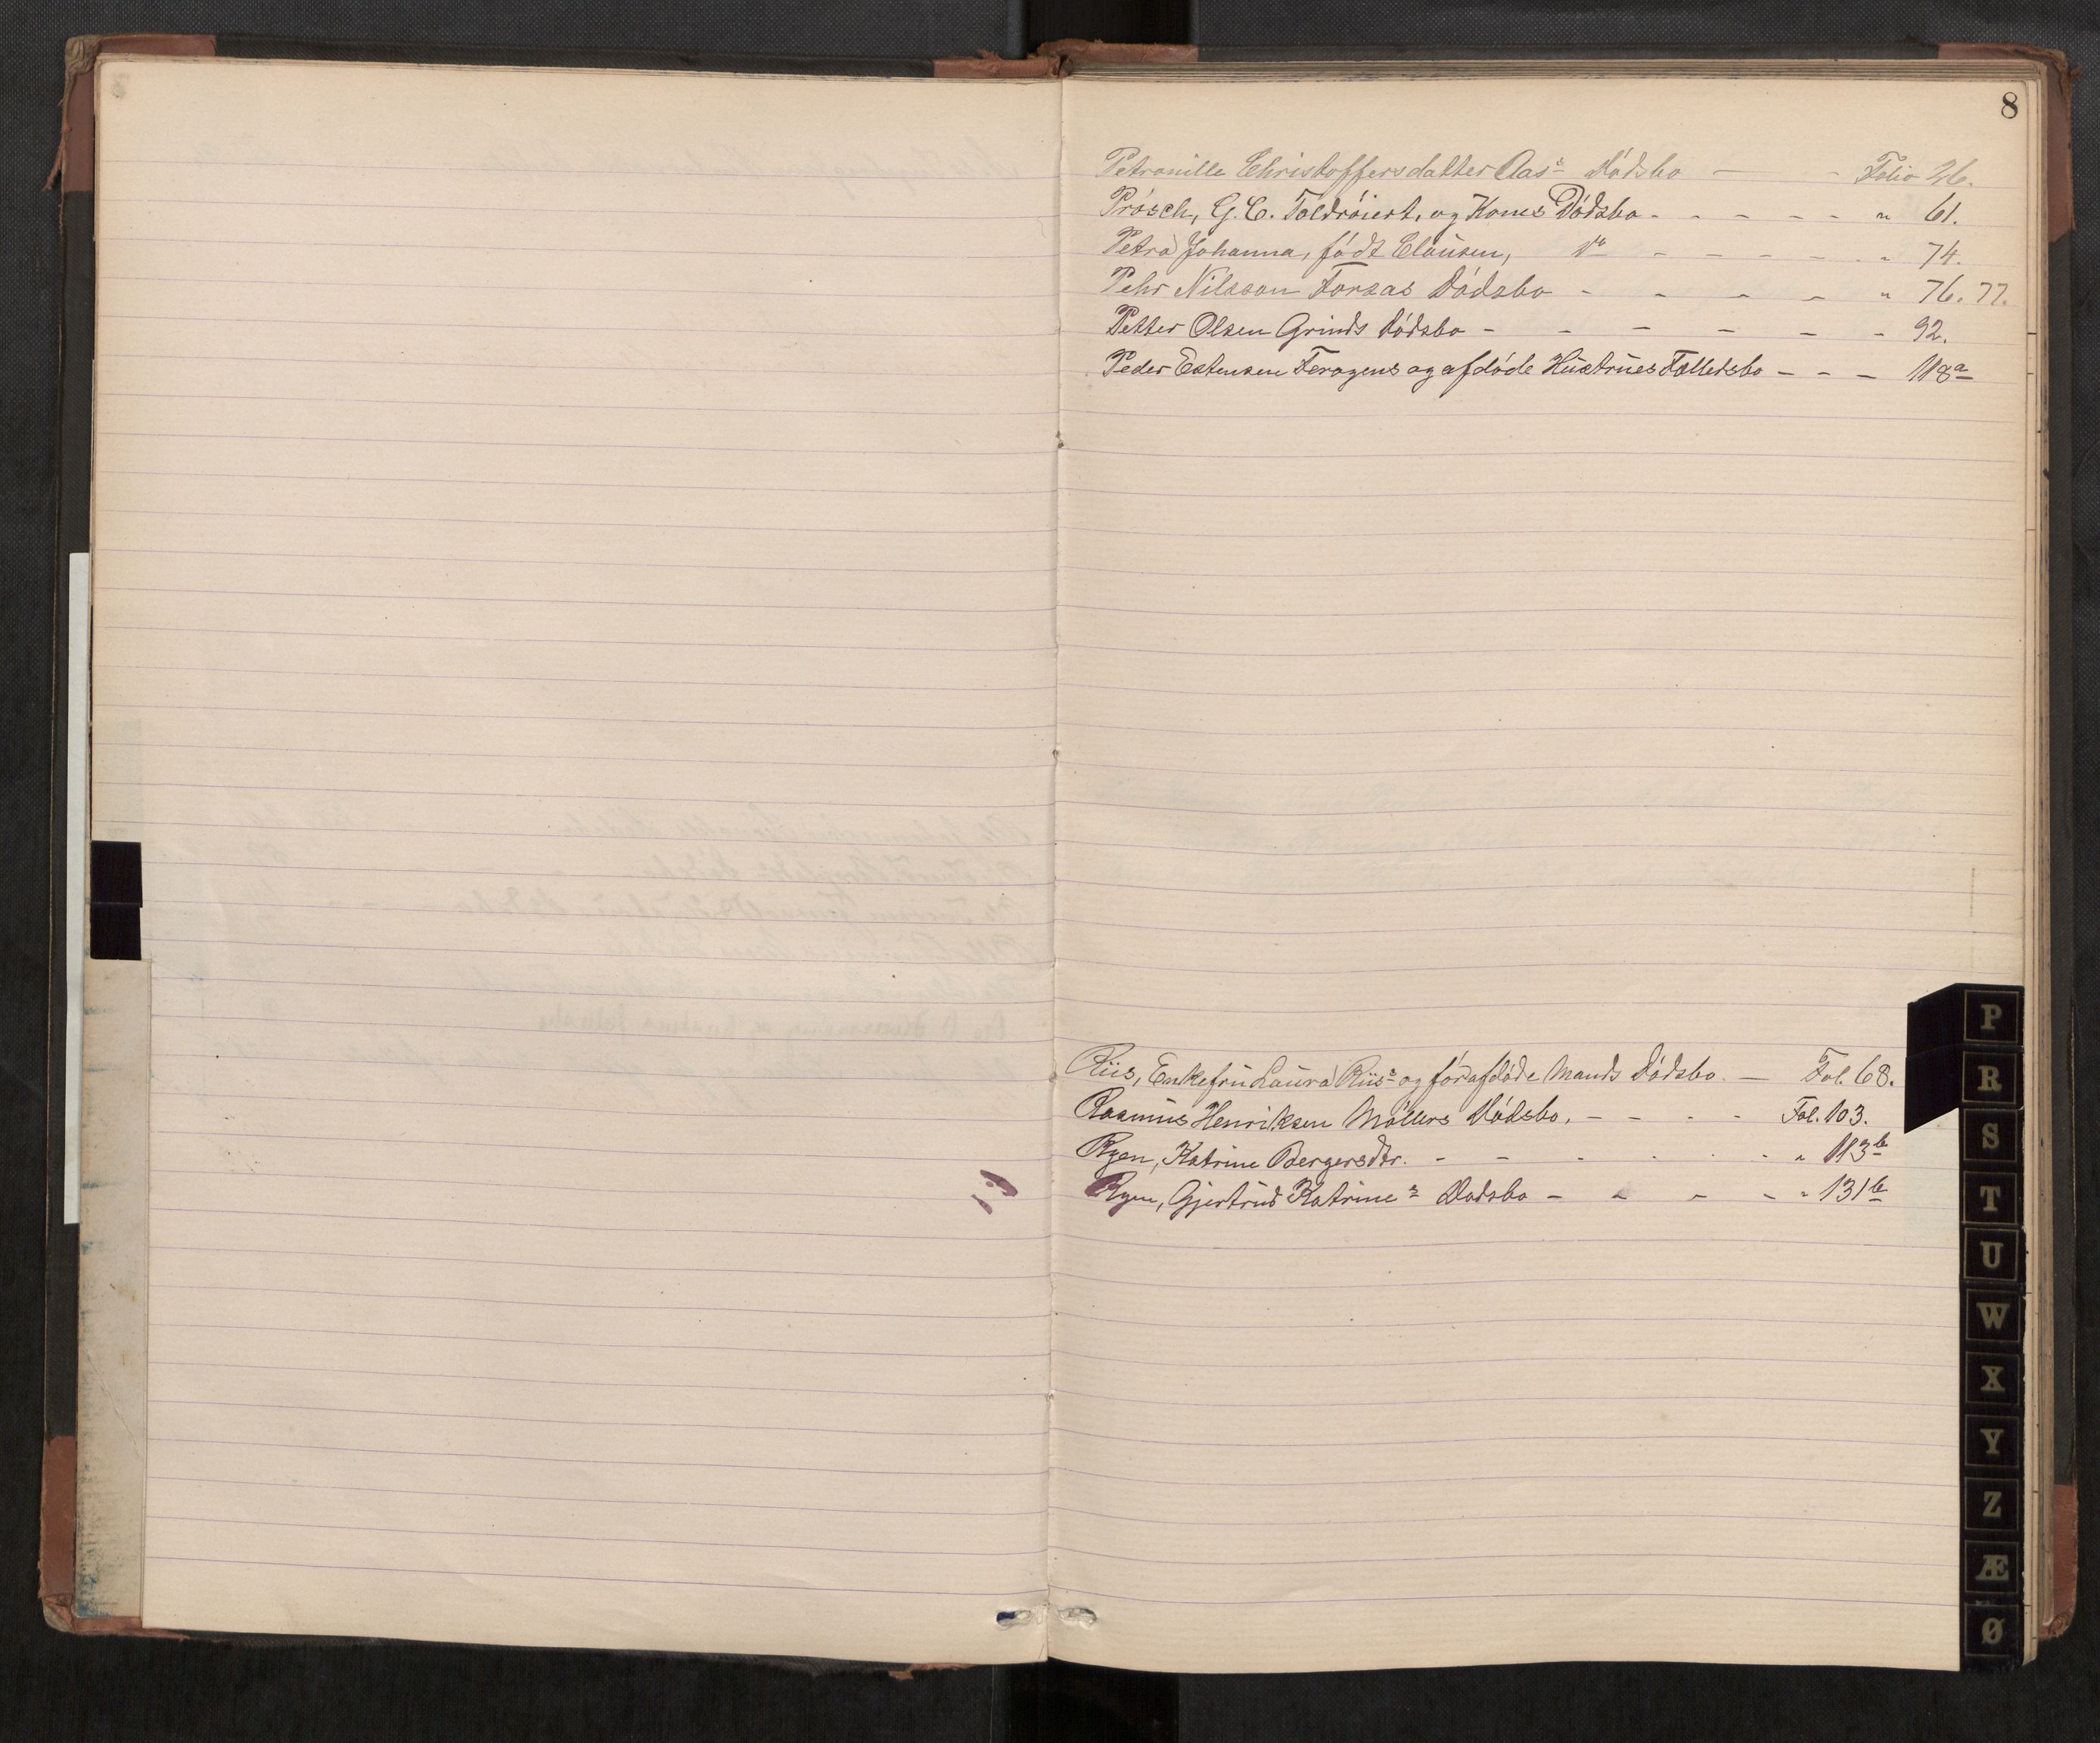 8
Petronille Christoffersdatter Aas's Dódsbo — - Folio 26.
Prósch, G. C. Toldróiert, og Kones Dódsbo - - - - - - " 61.
Petra Johanna, fódt Clausen, Do - - - - - " 74.
Pehr Nilsson Forsas Dódsbo - - - - " 76. 77.
Petter Olsen Grinds Dódsbo - - - - - - 92.
Peder Estensen Feragens og afdóde Hustrues Fællesbo - - - 118a
Riis, Enkefru Laura Riis's og fórafdóde Mands Dódsbo. — Fol. 68.
Rasmus Henriksen Móllers Dódsbo. - - - - Fol. 103.
Ryen, Katrine Bergersdtr. - - - - - - " 113b
Ryen, Gjertrud Katrines Dødsbo - - - - " 131b
P
R
S
T
U
W
X
Y
Z
Æ
Ø